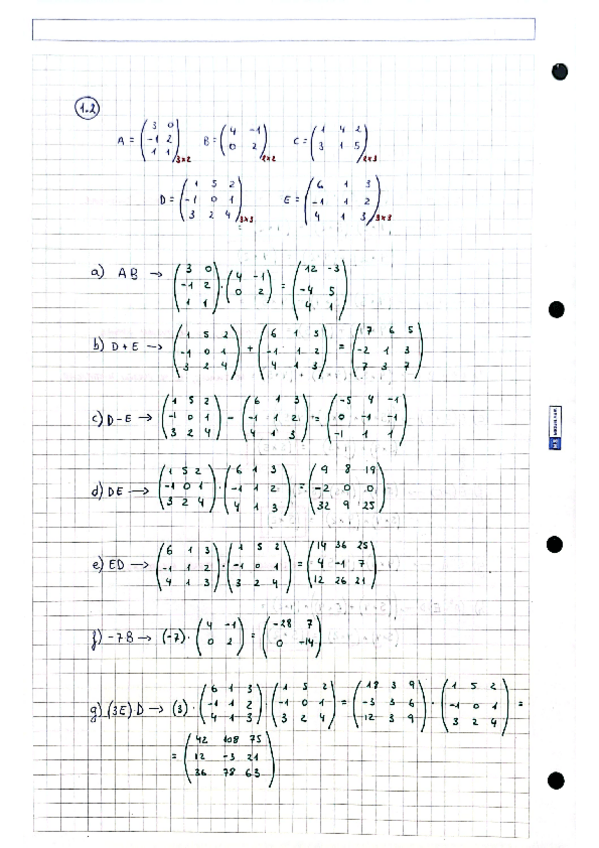 1.2
A = (3 0; -1 2; 1 1)3x2 B = (4 -1; 0 2)2x2 C = (1 4 2; 3 1 5)2x3
D = (1 5 2; -1 0 1; 3 2 4)3x3 E = (6 1 3; -1 1 2; 4 1 3)3x3
a) AB → (3 0; -1 2; 1 1) · (4 -1; 0 2) = (12 -3; -4 5; 4 1)
b) D+E → (1 5 2; -1 0 1; 3 2 4) + (6 1 3; -1 1 2; 4 1 3) = (7 6 5; -2 1 3; 7 3 7)
c) D-E → (1 5 2; -1 0 1; 3 2 4) - (6 1 3; -1 1 2; 4 1 3) = (-5 4 -1; 0 -1 -1; -1 1 1)
d) DE → (1 5 2; -1 0 1; 3 2 4) · (6 1 3; -1 1 2; 4 1 3) = (9 8 19; -2 0 0; 32 9 25)
e) ED → (6 1 3; -1 1 2; 4 1 3) · (1 5 2; -1 0 1; 3 2 4) = (14 36 25; 4 -1 7; 12 26 21)
f) -7B → (-7) · (4 -1; 0 2) = (-28 7; 0 -14)
g) (3E)D → (3) · (6 1 3; -1 1 2; 4 1 3) · (1 5 2; -1 0 1; 3 2 4) = (18 3 9; -3 3 6; 12 3 9) · (1 5 2; -1 0 1; 3 2 4) =
= (42 108 75; 12 -3 21; 36 78 63)